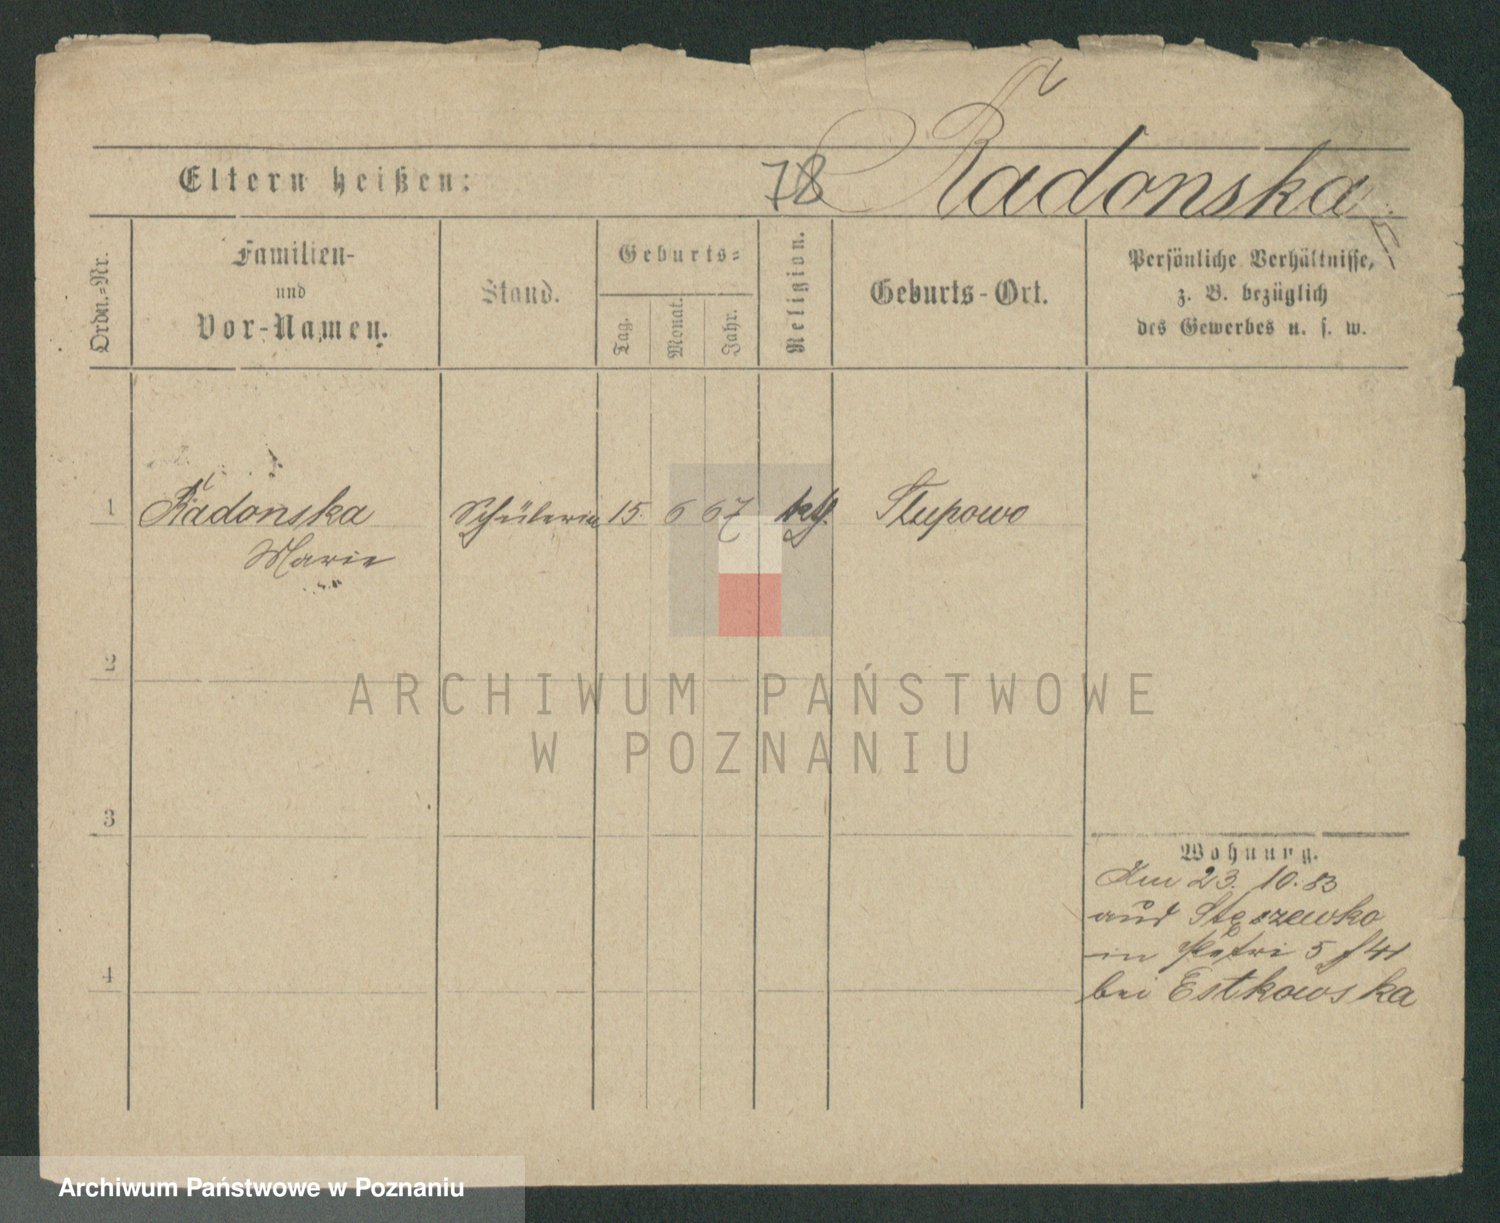 78 Radonska
Eltern heißen:
Ordn.-Nr.
Familien-
und
Vor-Namen.
Stand.
Geburts-
Tag.
Monat.
Jahr.
Religion.
Geburts-Ort.
Persönliche Verhältnisse,
z. B. bezüglich
des Gewerbes u. s. w.
1 Radonska Schülerin 15. 6 67 kth. Słupowo
Marie
2
3
4
Wohnung.
Am 23. 10. 83
aus Stęszewko
in Petri 5
bei Estkowska
ARCHIWUM PAŃSTWOWE
W POZNANIU
Archiwum Państwowe w Poznaniu